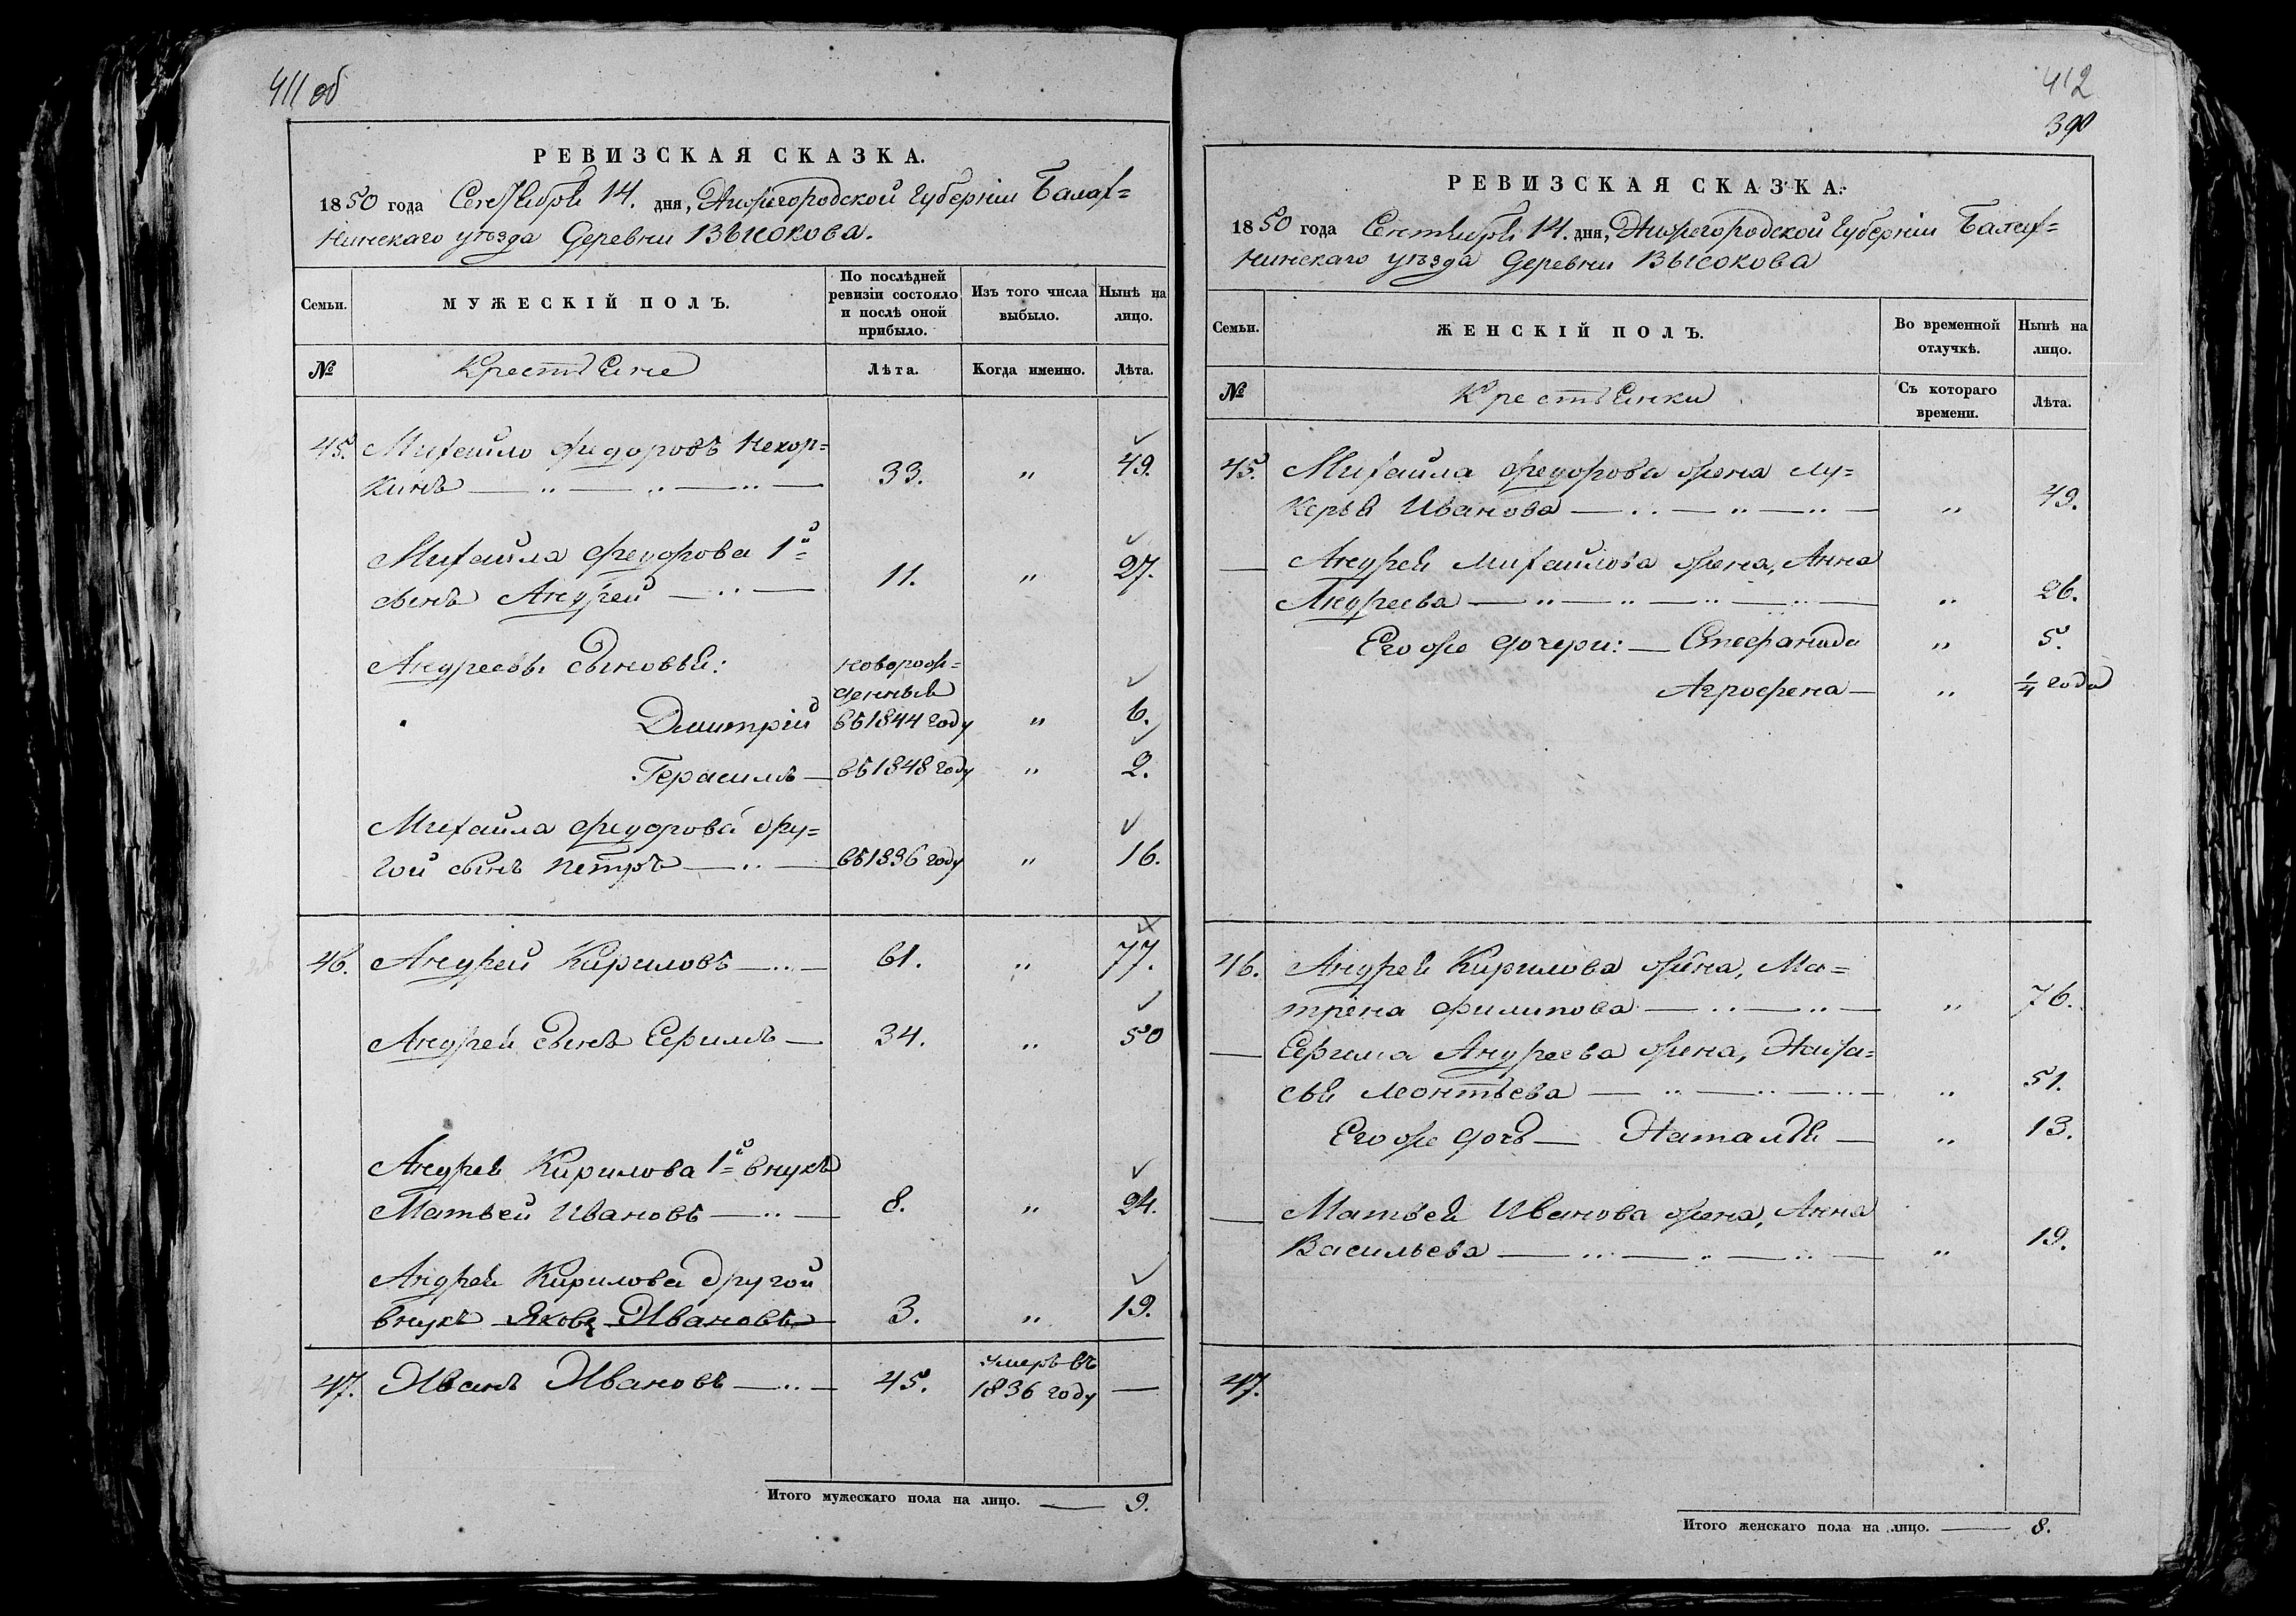 411 об
РЕВИЗСКАЯ СКАЗКА.
1850 года Сентября 14. дня, Нижегородской Губерніи Балах=
нинскаго уѣзда Деревни Высокова.
Семьи.
МУЖЕСКІЙ ПОЛЪ.
По послѣдней ревизіи состояло и послѣ оной прибыло.
Изъ того числа выбыло.
Нынѣ на лицо.
№ Крестьяне Лѣта. Когда именно. Лѣта.
45. Михайло Федоровъ Некор=
кинъ — „ — „ — „ — 33. „ 49.
Михайла Федорова 1й
сынъ Андрей — „ — 11. „ 27.
Андреевы сыновья: новорож=
денный
Дмитрій въ 1844 году „ 6.
Герасимъ — въ 1848 году „ 2.
Михайла Федорова дру=
гой сынъ Петръ — „ — въ 1836 году „ 16.
46. Андрей Кириловъ — „ — 61. „ 77.
Андрея сынъ Ефимъ — 34. „ 50
Андрея Кирилова 1й внукъ
Матвей Ивановъ — „ — 8. „ 24.
Андрея Кирилова другой
внукъ Яковъ Ивановъ 3. „ 19.
47. Иванъ Ивановъ — „ — 45. умеръ въ
1836 году —
Итого мужескаго пола на лицо. — 9.
412
390
РЕВИЗСКАЯ СКАЗКА.
1850 года Сентября 14. дня, Нижегородской Губерніи Балах=
нинскаго уѣзда Деревни Высокова
Семьи.
ЖЕНСКІЙ ПОЛЪ.
Во временной отлучкѣ.
Нынѣ на лицо.
№ Крестьянки Съ котораго времени. Лѣта.
45. Михайла Федорова жена Лу=
керья Иванова — „ — „ — „ — „ 49.
— Андрея Михайлова жена, Анна
Андреева — „ — „ — „ — „ — „ 26.
Его же дочери: — Стефанида „ 5.
Агрофена — „ 1/4 года
46. Андрея Кирилова жена, Ма=
трена Филипова — „ — „ — „ 76.
— Ефима Андреева жена, Наста=
сья Леонтьева — „ — „ — „ — „ 51.
Его же дочь — Наталья — „ 13.
— Матвея Иванова жена, Анна
Васильева — „ — „ — „ — „ 19.
47.
Итого женскаго пола на лицо. — 8.